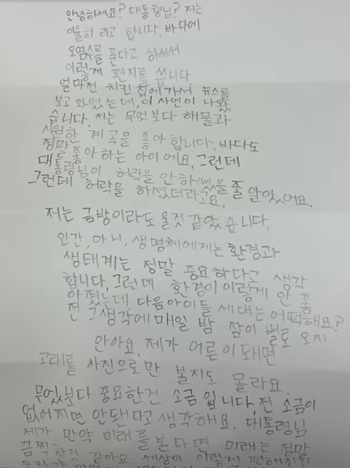 안녕하세요? 대통령님? 저는
라고 합니다. 바다에
오염수를 푼다고 하셔서
이렇게 편지를 씁니다
얼마전 치킨 집에 가서 뉴스를
보고 있었는데, 이 사연이 나왔
습니다. 저는 무엇보다 해물과
시원한 제 곡을 좋아합니다. 바다도
정말
을 좋아 하는 아이에요. 그런데
대통령님이 허락을 안 하셨을줄 알았어요.
그런데 허락을 하셨더라고요.
저는 금방이라도 울것 같았습니다.
인간, 아니, 생명체에게는 환경과
생태계는 정말 중요하다고 생각
합니다. 그런데 환경이 이렇게 안 좋
아졌는데 다음아이들 세대는 어떡해요?
전 그생각에 매일 밤 잠이 별로 오지
안아요. 제가 어른이 돼면
고래를 사진으로만 볼지도 몰라요
무엇보다 중요한건 소금 입니다. 전 소금이
없어지면 안됀다고 생각하요. 대통령님
제가 만약 미래를 본다면 미래는 정말
끔찍 할것 같아요. 세상이 이렇게